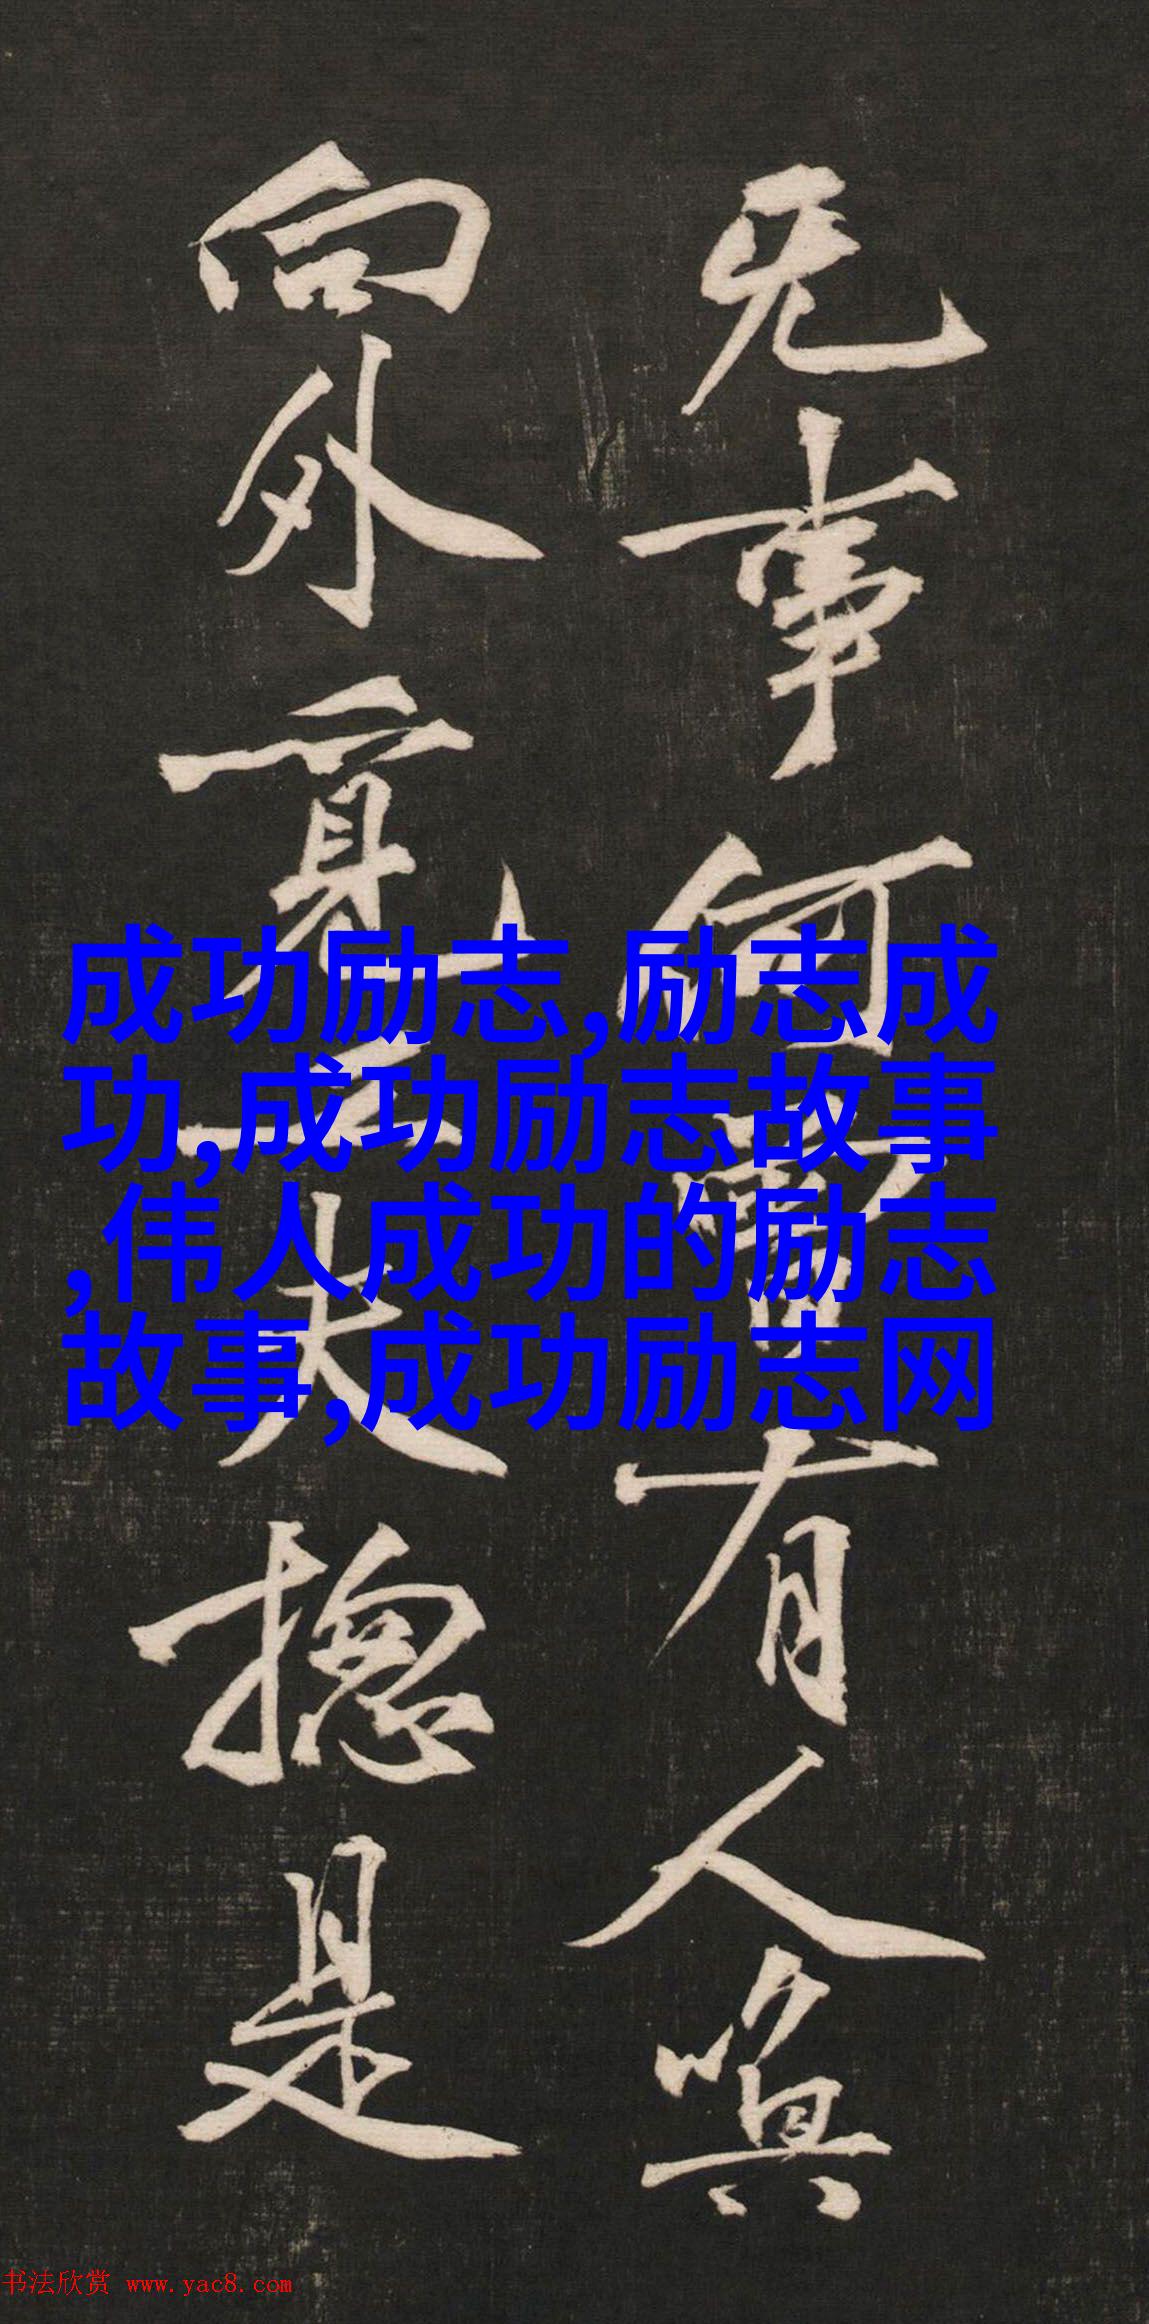 无事何有人
向外工夫揔是
成功励志,励志成
功,成功励志故事
,伟人成功的励志
故事,成功励志网
书法欣赏 www.yac8.com